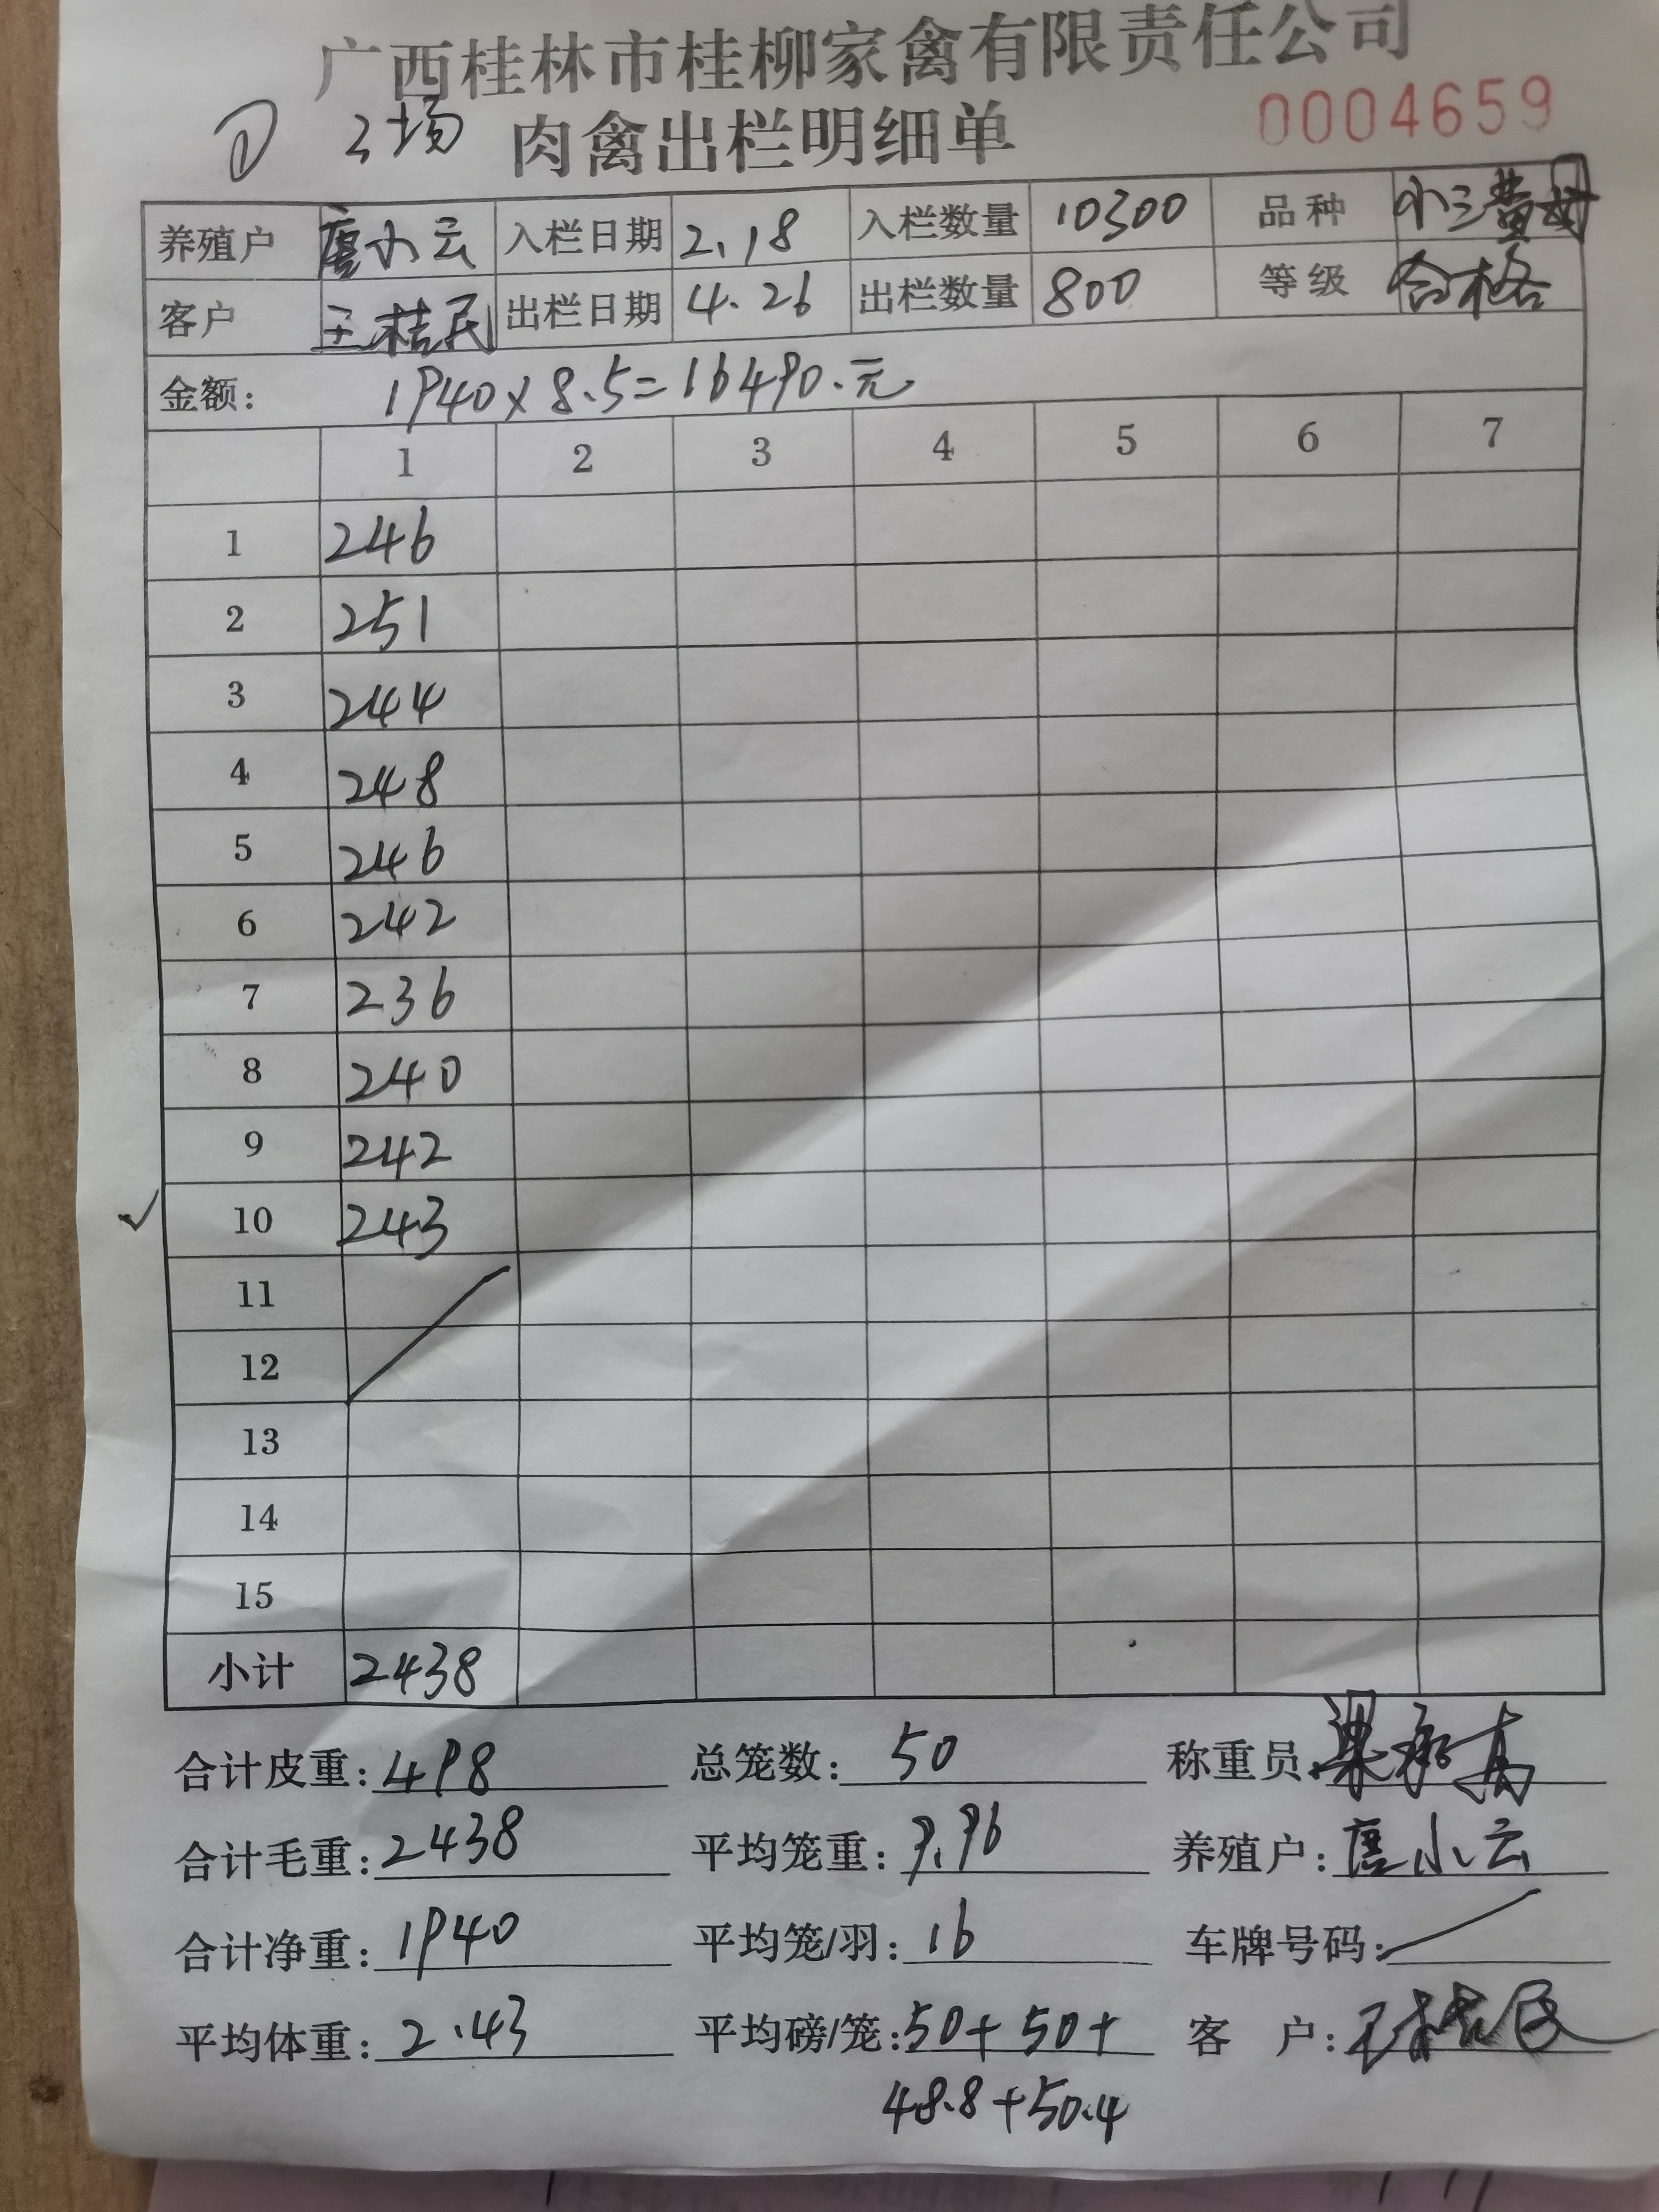 广西桂林市桂柳家禽有限责任公司
① 3场 肉禽出栏明细单 0004659
养殖户 唐小云 入栏日期 2.18 入栏数量 10300 品种 小三黄母
客户 王桂民 出栏日期 4.26 出栏数量 800 等级 合格
金额: 1940×8.5=16490.元
1 2 3 4 5 6 7
1 246
2 251
3 244
4 248
5 246
6 242
7 236
8 240
9 242
✓ 10 243
11
12
13
14
15
小计 2438
合计皮重: 498 总笼数: 50 称重员: 梁
合计毛重: 2438 平均笼重: 9.96 养殖户: 唐小云
合计净重: 1940 平均笼/羽: 16 车牌号码:
平均体重: 2.43 平均磅/笼: 50+50+ 客 户: 王桂民
48.8+50.4